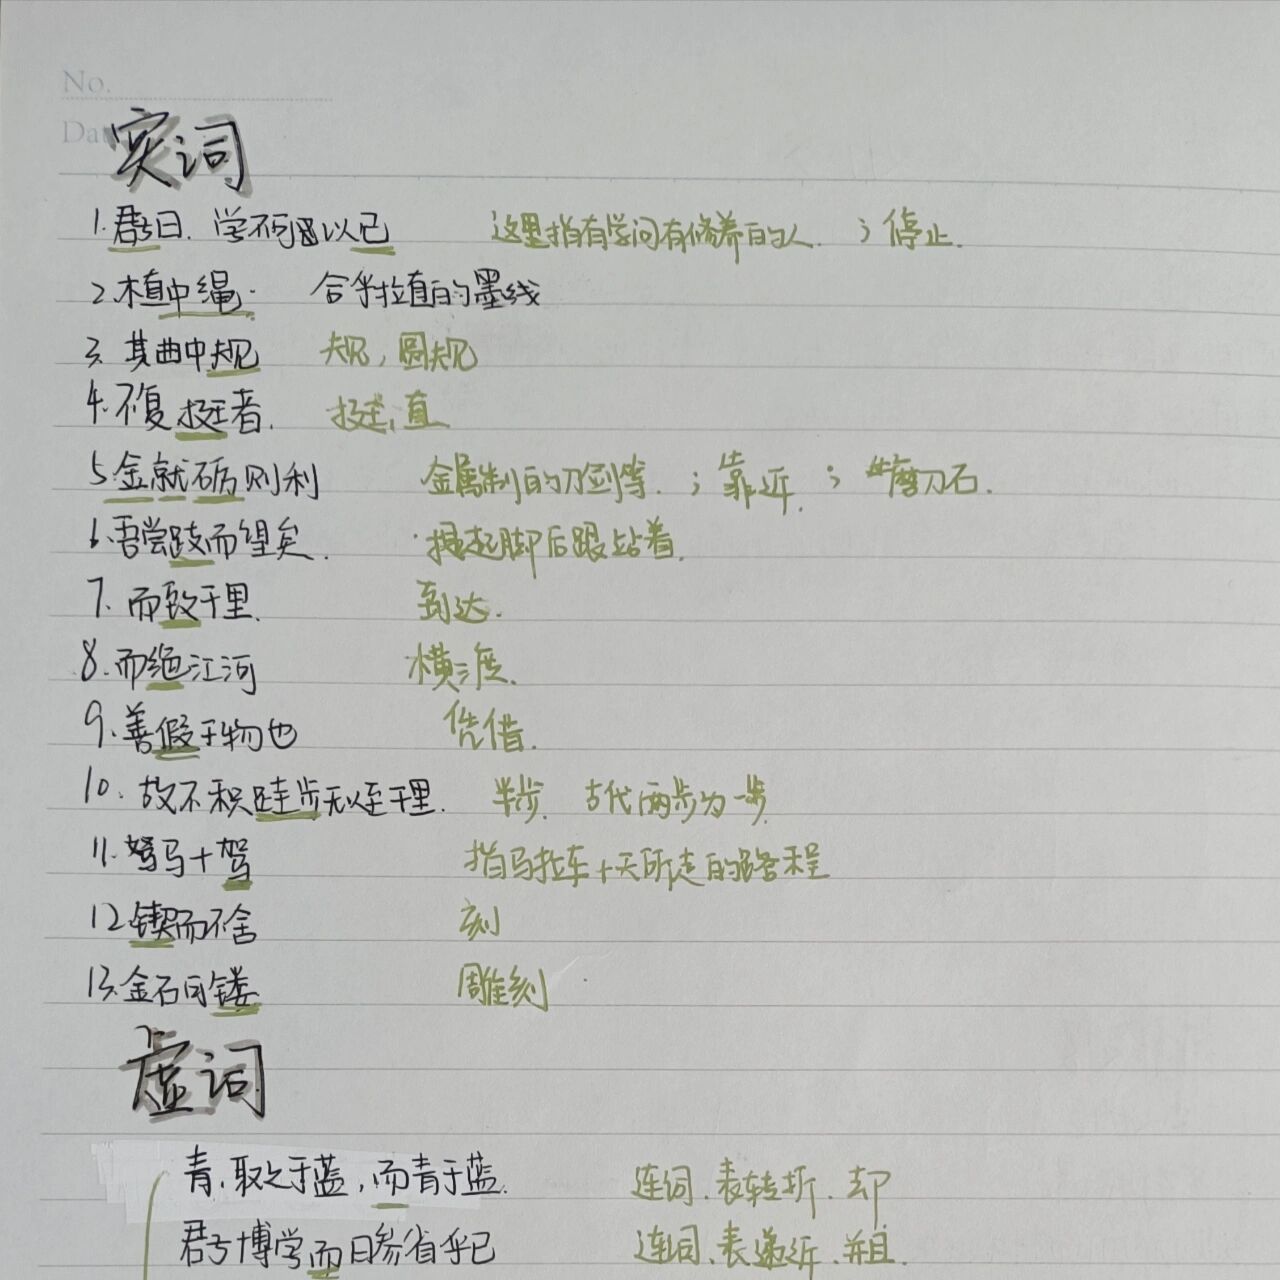 No.
Da
实词
1.君子曰、学不可以已 这里指有学问有修养的人、;停止.
2.木直中绳. 合乎拉直的墨线
3.其曲中规 规,圆规
4.不复挺者. 挺,直
5.金就砺则利 金属制的刀剑等.;靠近;磨刀石.
6.吾尝跂而望矣. 提起脚后跟站着.
7.而致千里. 到达.
8.而绝江河 横渡.
9.善假于物也 凭借.
10.故不积跬步无以至千里. 半步、古代两步为一步
11.驽马十驾 指马拉车十天所走的路程
12.锲而不舍 刻
13.金石可镂 雕刻
虚词
青,取之于蓝,而青于蓝. 连词、表转折、却
君子博学而日参省乎己 连词、表递近、并且